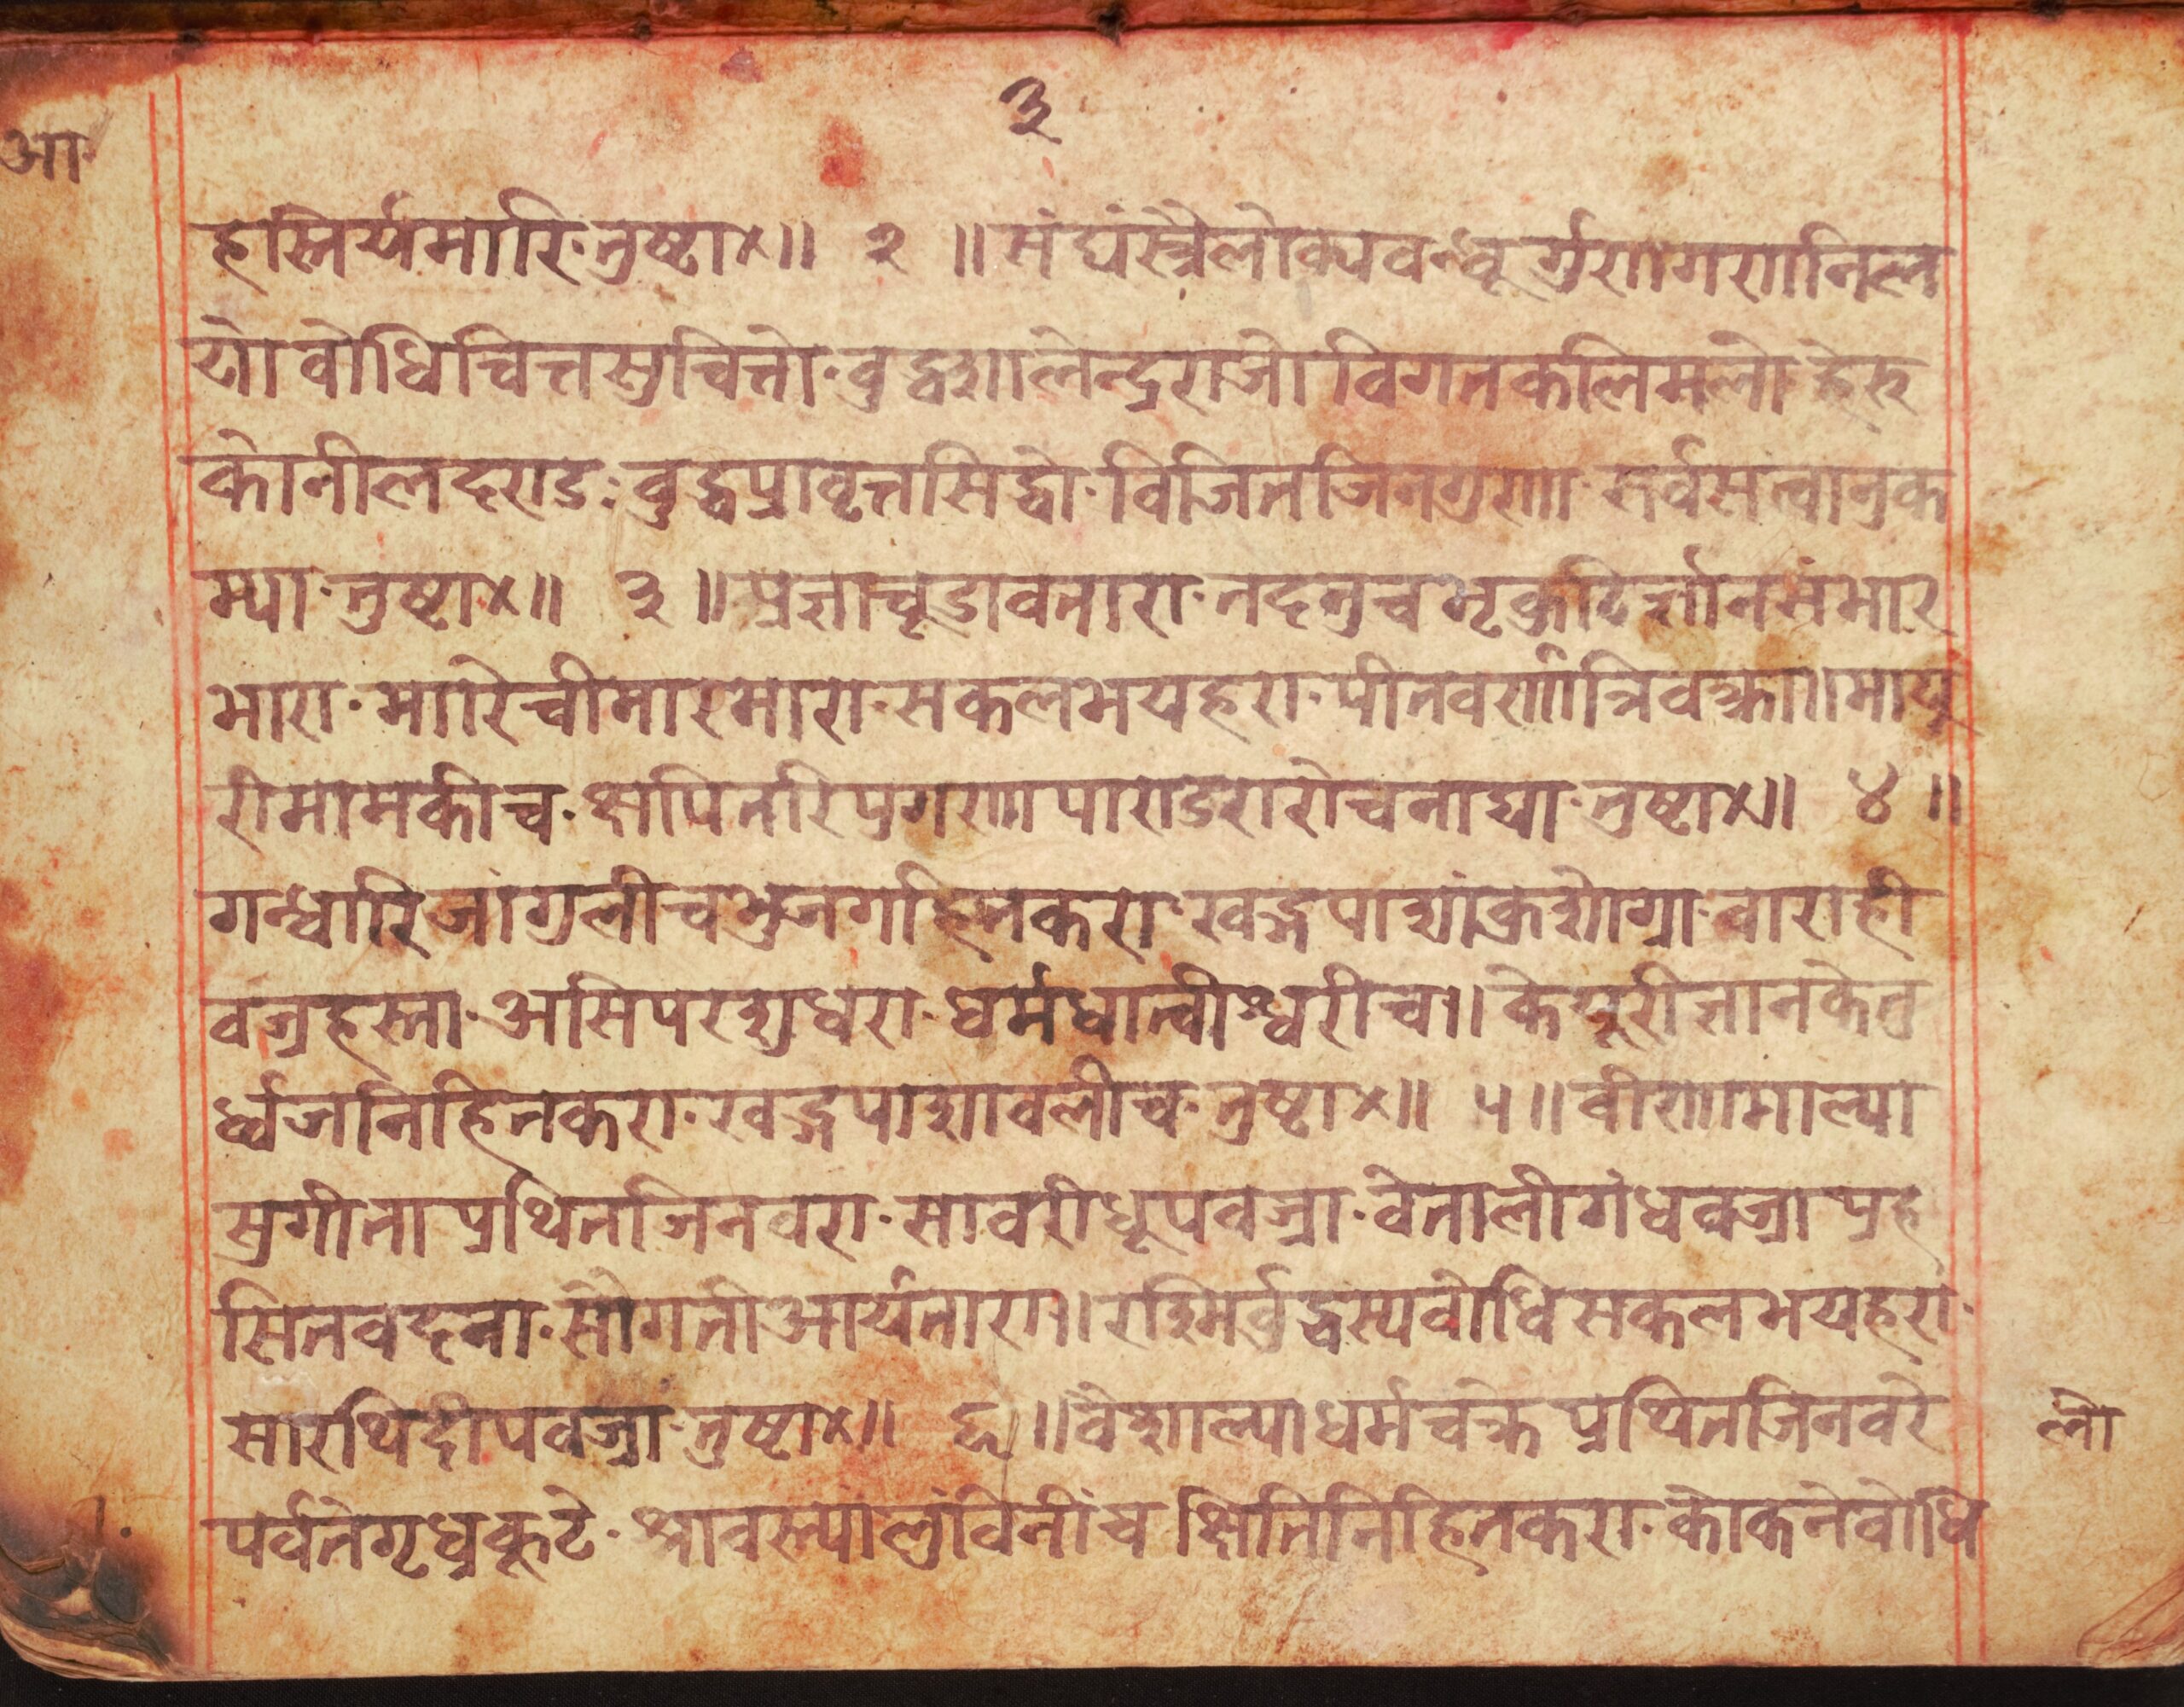 ३
आ
हस्तिर्यमारि·तुष्टा४॥ २ ॥संघंस्त्रैलोक्यवन्धूर्गुणगणनिल
यो वोधिचित्तसुचित्तो·वुद्धशालेन्द्रराजो विगतकलिमलो हेरु
कोनीलदण्ड·वुद्धप्रावृत्तसिद्धो·विजितजिनगुण·सर्वसत्वानुक
म्पा·तुष्टा४॥ ३ ॥प्रज्ञाचूडावतारा·तदनुचभृकुटिर्ज्ञानसंभार
भारा·मारिचीमारमारा·सकलभयहरा·पीतवर्णात्रिवक्त्रा॥मायू
रीमामकीच·क्षपितरिपुगणापाण्डरारोचनाद्या·तुष्टा४॥ ४ ॥
गन्धारिजांगुलीचभुजगहितकरा·खड्गपाश्यांक्रश्योग्रा·वाराही
वज्रहस्ता·असिपरशुधरा·धर्मधात्वीश्वरीच॥केयूरीज्ञानकेतु
र्ध्वजनिहितकरा·खड्गपाशावलीच·तुष्टा४॥ ५॥वीणामाल्या
सुगीता प्रथितजिनवरा·सावरीधूपवज्रा·वेतालीगंधवज्रा प्रह
सितवदना·सौगतीआर्यतारा॥रश्मिर्वुद्धस्यवोधि सकलभयहरा·
सारथिदीपवज्रा·तुष्टा४॥ ६ ॥वैशाल्याधर्मचक्रे प्रथितजिनवरे
पर्वतेगृध्रकूटे·श्रावस्त्यांलुंविनींच क्षितिनिहितकरा·कोकनेवोधि
लो